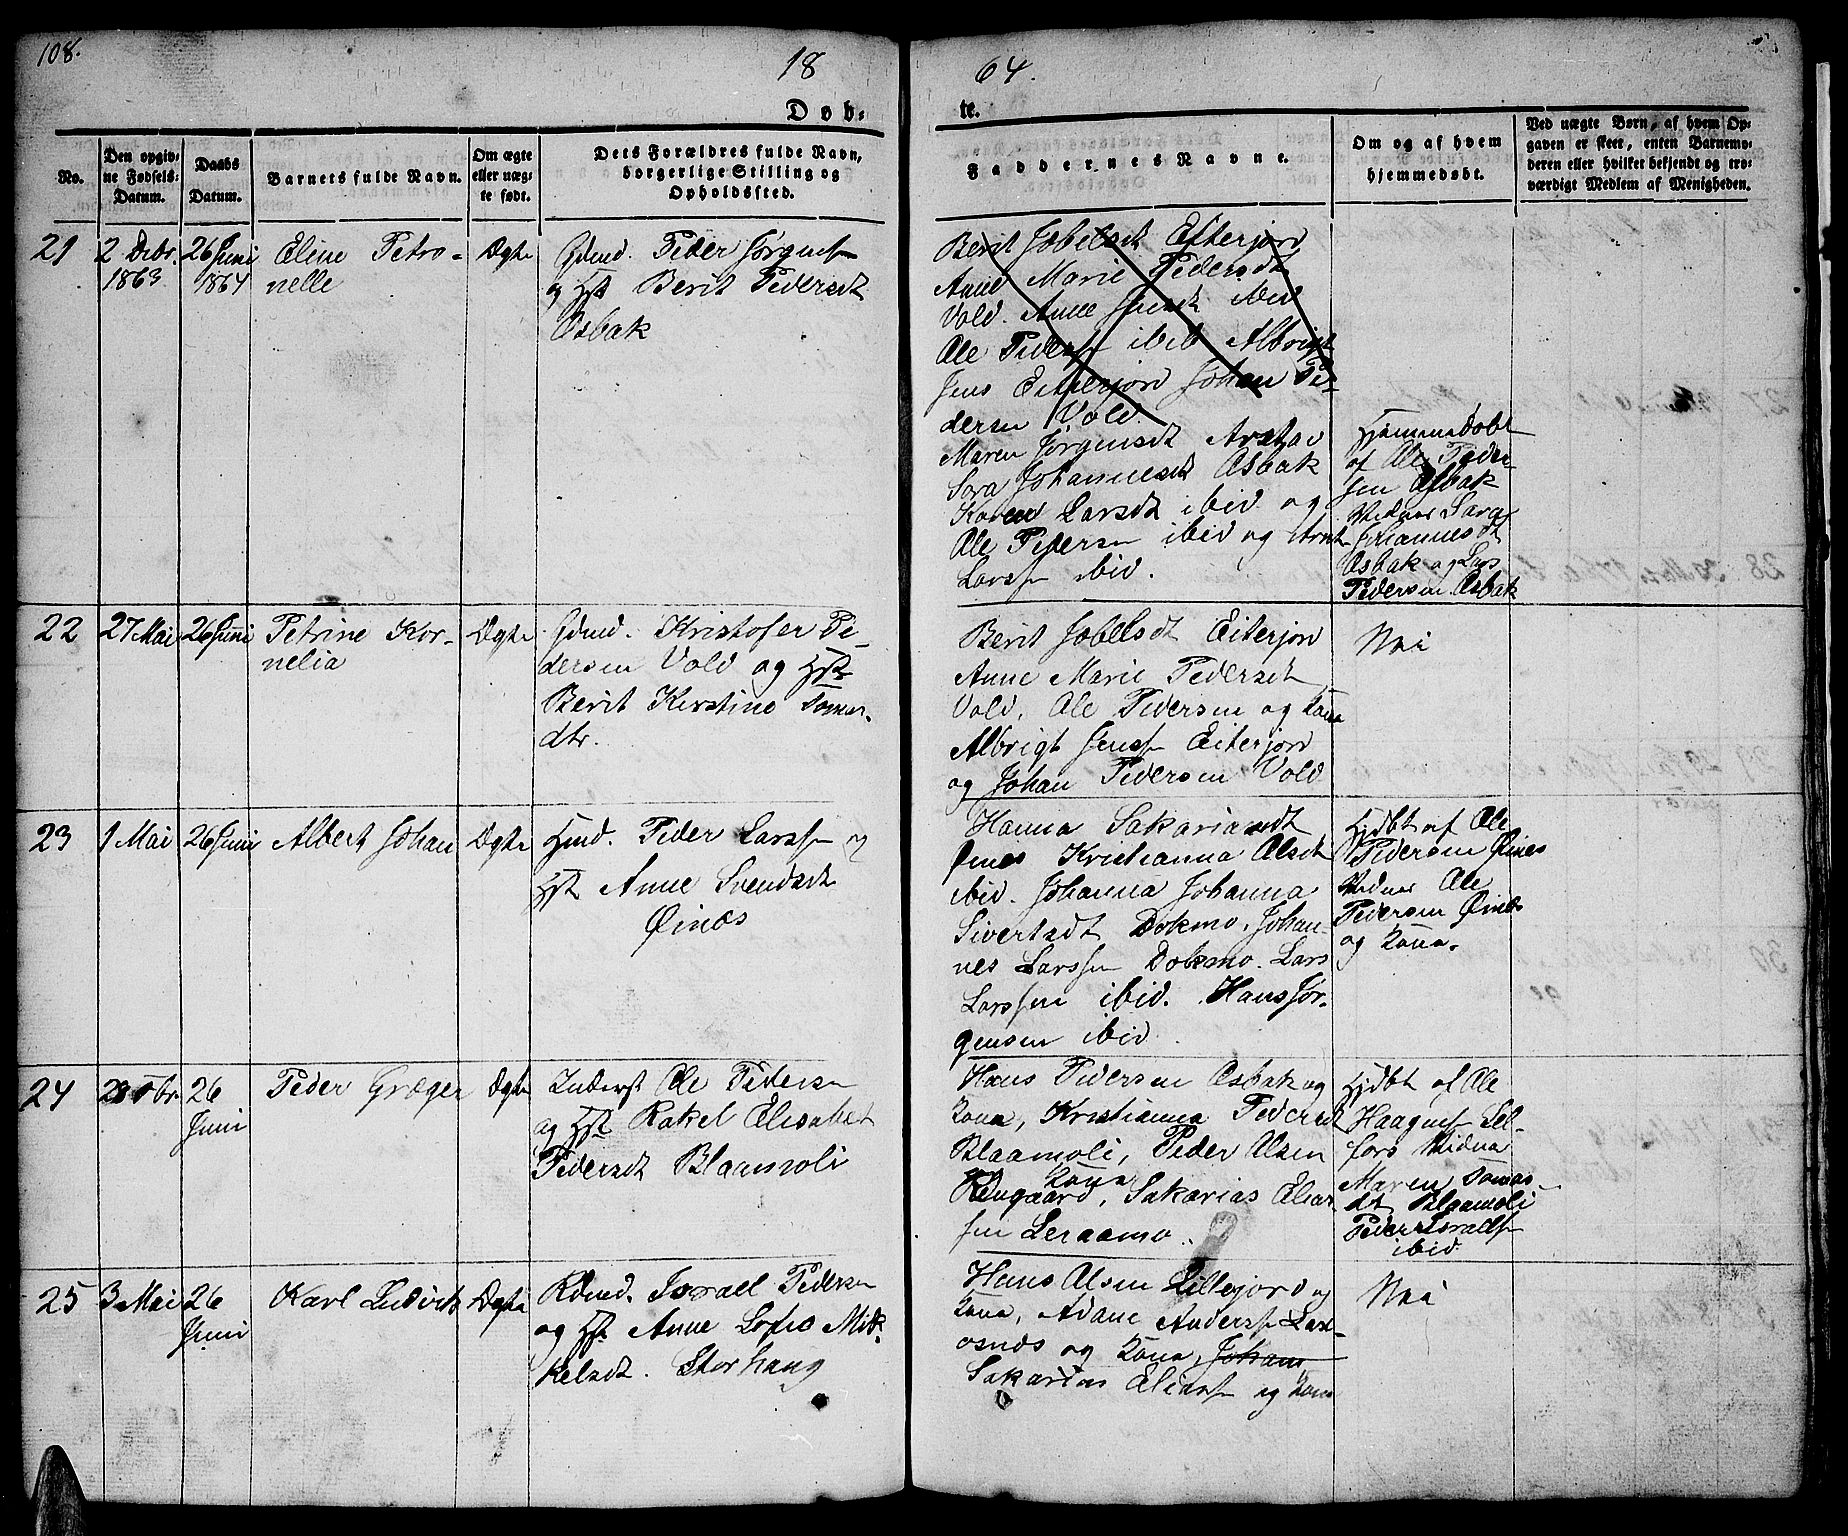 108.
18
64.
Døb-
te.
No.
Den opgiv-
ne Fødsels-
Datum.
Daabs
Datum.
Barnets fulde Navn.
Om ægte
eller uæg-
te født.
Dets Forældres fulde Navn,
borgerlige Stilling og
Opholdssted.
Faddernes Navne.
Om og af hvem
hjemmedøbt.
Ved uægte Børn, af hvem Op-
gaven er skeet, enten Barnemo-
deren eller hvilket bekjendt og tro-
værdigt Medlem af Menigheden.
21
2 Decbr.
1863
26 Juni
1864
Eline Petro-
nelle
Ægte
Gdmd. Peder Jørgens
og Hst Berit Pedersdt
Osbak
Berit Jobelsdt Efterjord
Anne Marie Pedersdt
Vold. Anne Jensdt ibid
Ole Peders ibid Albrigt
Jens Eiterjord Johan Pe-
dersen Vold
Maren Jørgensdt
Sara Johannesdt Osbak
Karen Larsdt ibid og
Ole Pedersen ibid og Arnt
Larssen ibid.
Hjemmedøbt
af Ole Peder-
sen Osbak
Vidner Sara
Johannesdt
Osbak og Lars
Pedersen Osbak
22
27 Mai
26 Juni
Petrine Kor-
nelia
Ægte
Gdmd. Kristofer Pe-
dersen Vold og Hst
Berit Kirstine Tomas-
dtr.
Berit Jobelsdt Eiterjord
Anne Marie Pedersdt
Vold, Ole Pedersen og Kona
Albrigt Jenss Eiterjord
og Johan Pedersen Vold
Nei
23
1 Mai
26 Juni
Albert Johan
Ægte
Hmd. Peder Larssen og
Hst Anne Svendsdt
Øines
Hanna Sakariasdt
Øines Kristianna Olsdt
ibid. Johanna Johanna
Sivertsdt Dokmo, Johan-
nes Larssen Dokmo. Lars
Larssen ibid. Hans Jør-
gensen ibid
Hjdbt af Ole
Pedersen Øines
Vidner Ole
Pedersen Øines
og Kona.
24
26
Juni
Peder Græger
Ægte
Inderst Ole Peters
og Hst Rakel Elisabet
Pedersdt Blaamoli
Hans Pedersen Osbak og
Kona, Kristianna Pedersdt
Blaamoli, Peder Olsen
Kona
Rengaard, Sakarias Elias-
sen Leraamo.
Hjdbt af Ole
Haagens Sel-
fors Vidner
Maren Tomas-
dt Blaamoli
Peder Israels
ibid
25
3 Mai
26
Juni
Karl Ludvik
Ægte
Rdmd. Israel Pedersen
og Hst Anne Sofie Mik-
kelsdt. Storhaug
Hans Olsen Lillejord og
Kona, Adane Anders Lax-
osnes og Kona, Johan
Sakarias Elias og Kona
Nei